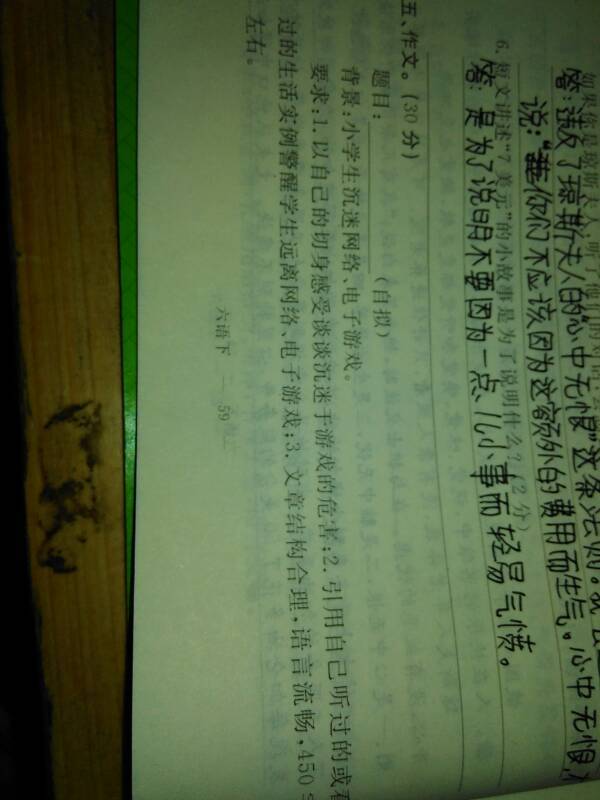 如果你是琼斯夫人,听了他们的对话
答:违反了琼斯夫人的“心中无恨”这条法则。我会
说:“你们不应该因为这额外的费用而生气。心中无恨,
6. 短文讲述“7美元”的小故事是为了说明什么?(2分)
答:是为了说明不要因为一点儿小事而轻易气愤。
五、作文。(30分)
题目:__________(自拟)
背景:小学生沉迷网络、电子游戏。
要求:1. 以自己的切身感受谈谈沉迷于游戏的危害;2. 引用自己听过的或看
过的生活实例警醒学生远离网络、电子游戏;3. 文章结构合理,语言流畅,450
左右。
六语下 — 59